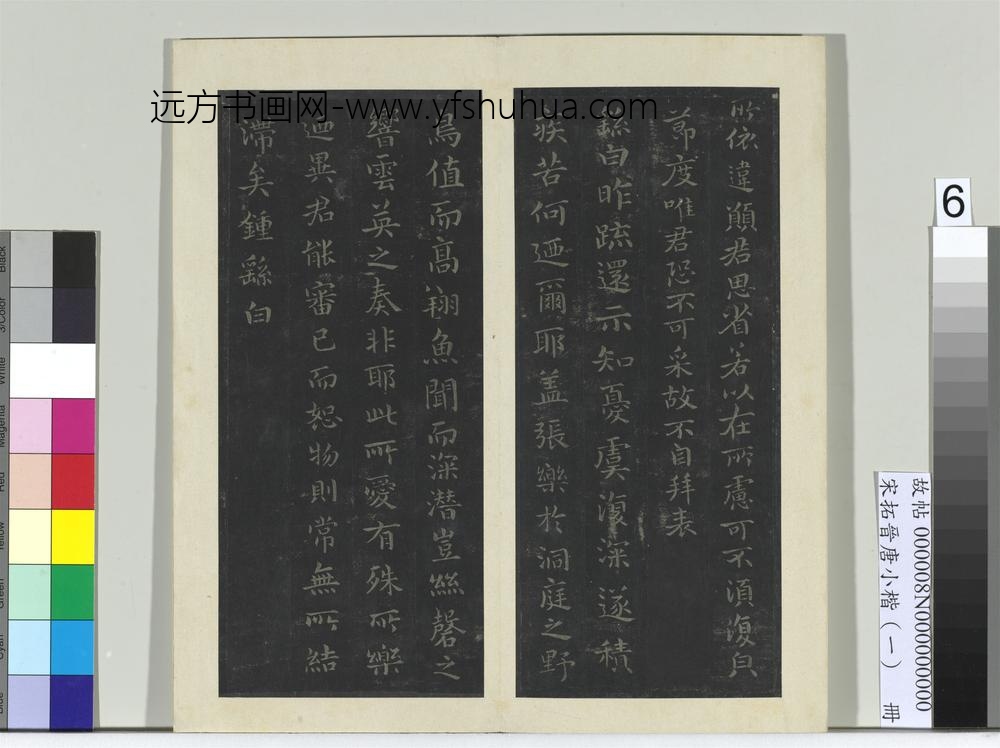 所依違願君思省若以在所慮可不須復自
節度唯君恐不可采故不自拜表
繇白昨疏還示知憂虞復深遂積
疾若何迺爾耶蓋張樂於洞庭之野
鳥值而高翔魚聞而深潛豈絲磬之
響雲英之奏非耶此所愛有殊所樂
迺異君能審己而恕物則常無所結
滯矣鍾繇白
远方书画网-www.yfshuhua.com
6
故帖 000008N000000000
宋拓晉唐小楷(一) 冊
Black
3/Color
White
Magenta
Red
Yellow
Green
Cyan
Blue